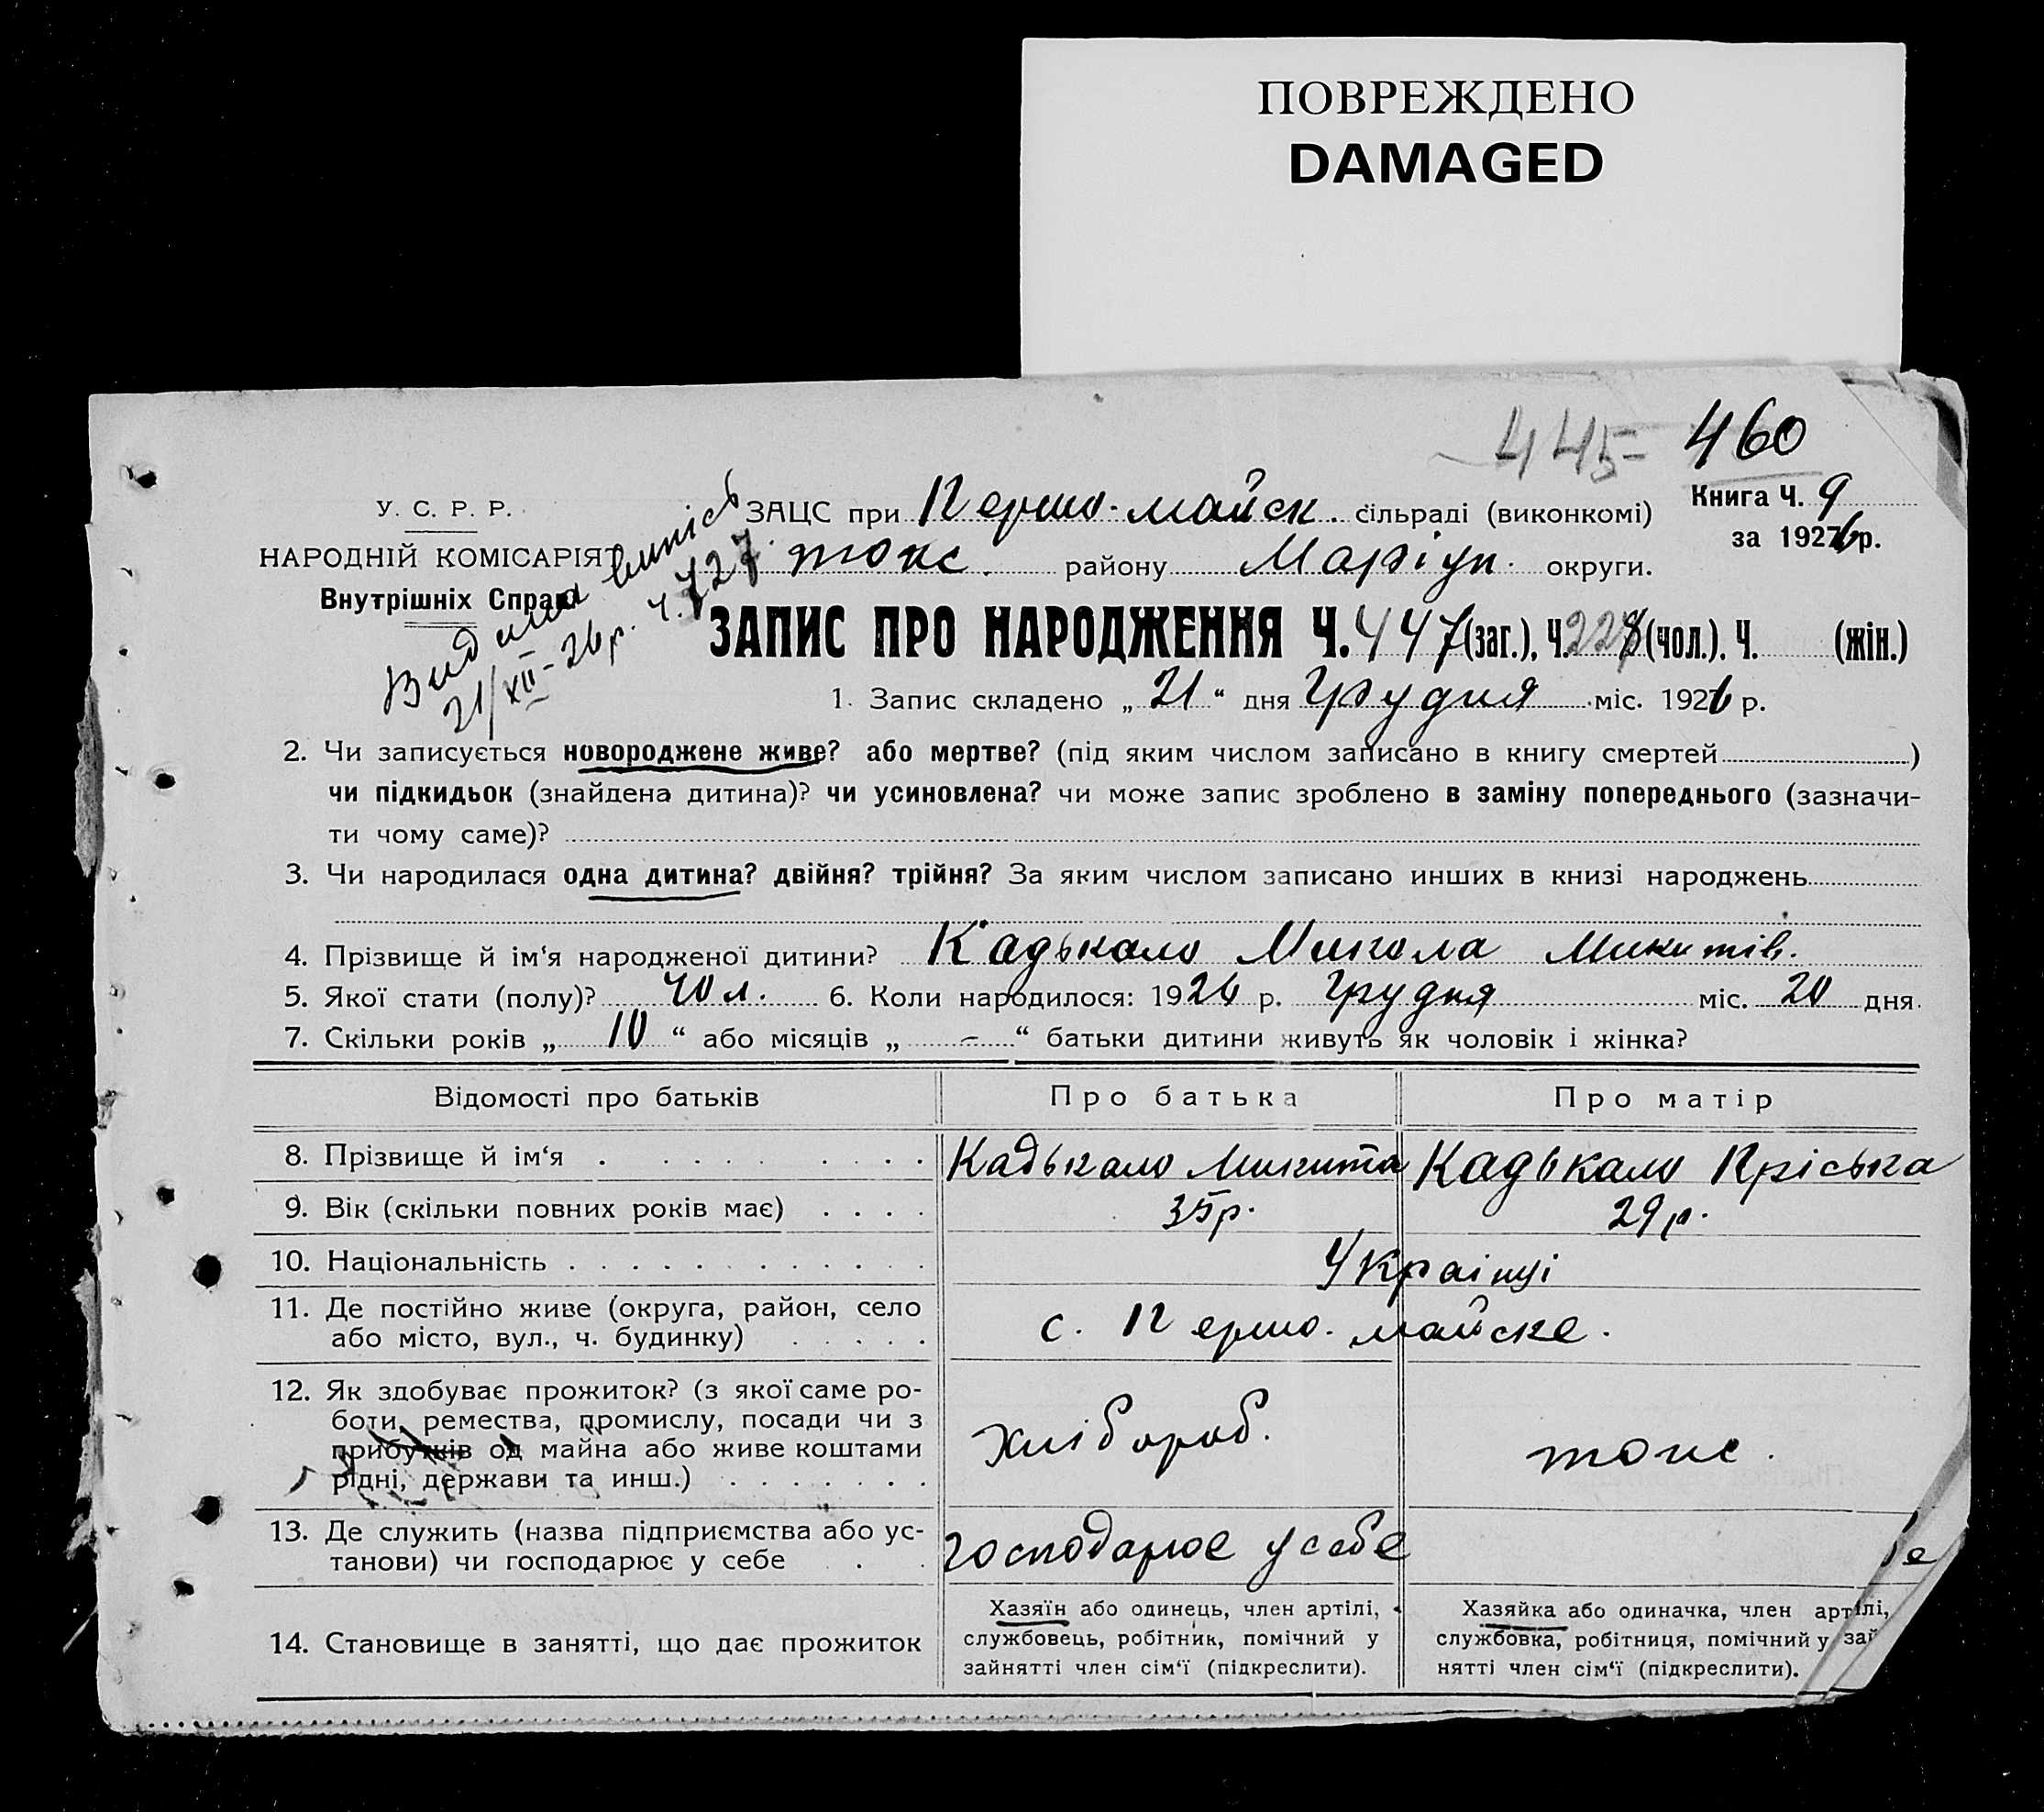 ПОВРЕЖДЕНО
DAMAGED
445 460
У. С. Р. Р.
НАРОДНІЙ КОМІСАРІЯТ
Внутрішніх Справ
Видана випись
21/XII-26р. ч. 727
ЗАЦС при Першо-майск. сільраді (виконкомі)
Книга Ч. 9
за 1926 р.
токс. району Маріуп. округи.
ЗАПИС ПРО НАРОДЖЕННЯ Ч. 447 (заг.), Ч. (чол.). Ч. (жін.)
1. Запис складено „21“ дня Грудня міс. 1926 р.
2. Чи записується новороджене живе? або мертве? (під яким числом записано в книгу смертей )
чи підкидьок (знайдена дитина)? чи усиновлена? чи може запис зроблено в заміну попереднього (зазначи-
ти чому саме)?
3. Чи народилася одна дитина? двійня? трійня? За яким числом записано инших в книзі народжень
4. Прізвище й ім‘я народженої дитини? Кадькало Микола Микитів.
5. Якої стати (полу)? Чол. 6. Коли народилося: 1926 р. Грудня міс. 20 дня.
7. Скільки років „10“ або місяців „-“ батьки дитини живуть як чоловік і жінка?
Відомості про батьків Про батька Про матір
8. Прізвище й ім‘я Кадькало Микита Кадькало Пріська
9. Вік (скільки повних років має) 35р. 29р.
10. Національність Українці
11. Де постійно живе (округа, район, село
або місто, вул., ч. будинку) с. Першо-майске.
12. Як здобуває прожиток? (з якої саме ро-
боти, ремества, промислу, посади чи з
прибутків од майна або живе коштами
рідні, держави та инш.) Хлібороб. токс.
13. Де служить (назва підприємства або ус-
танови) чи господарює у себе господарює у себе
14. Становище в занятті, що дає прожиток
Хазяїн або одинець, член артілі,
службовець, робітник, помічний у
зайнятті член сім‘ї (підкреслити).
Хазяйка або одиначка, член артілі,
службовка, робітниця, помічний у зай
нятті член сім‘ї (підкреслити).